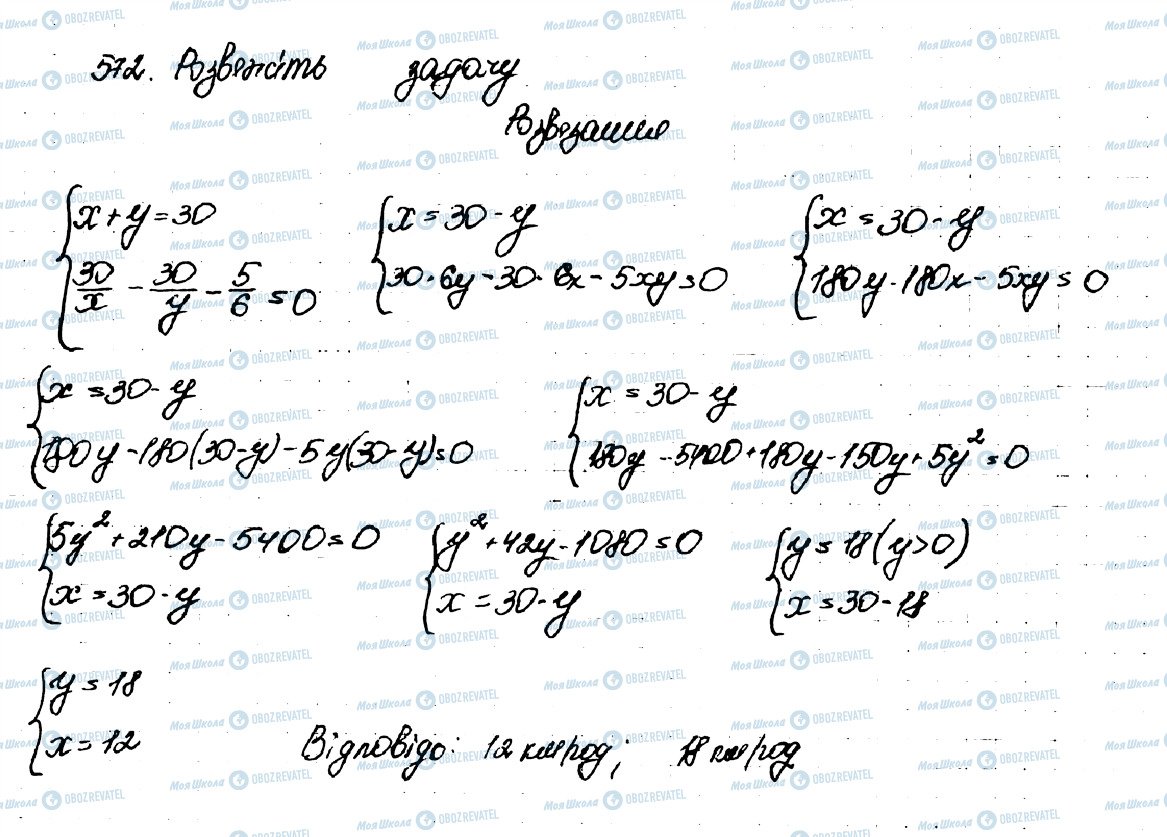 572. Розвяжіть задачу
Розвязання
x + y = 30
30/x - 30/y - 5/6 = 0
x = 30 - y
30·6y - 30·6x - 5xy = 0
x = 30 - y
180y - 180x - 5xy = 0
x = 30 - y
180y - 180(30 - y) - 5y(30 - y) = 0
x = 30 - y
180y - 5400 + 180y - 150y + 5y² = 0
5y² + 210y - 5400 = 0
x = 30 - y
y² + 42y - 1080 = 0
x = 30 - y
y = 18 (y > 0)
x = 30 - 18
y = 18
x = 12
Відповідь: 12 км/год; 18 км/год
Моя Школа OBOZREVATEL